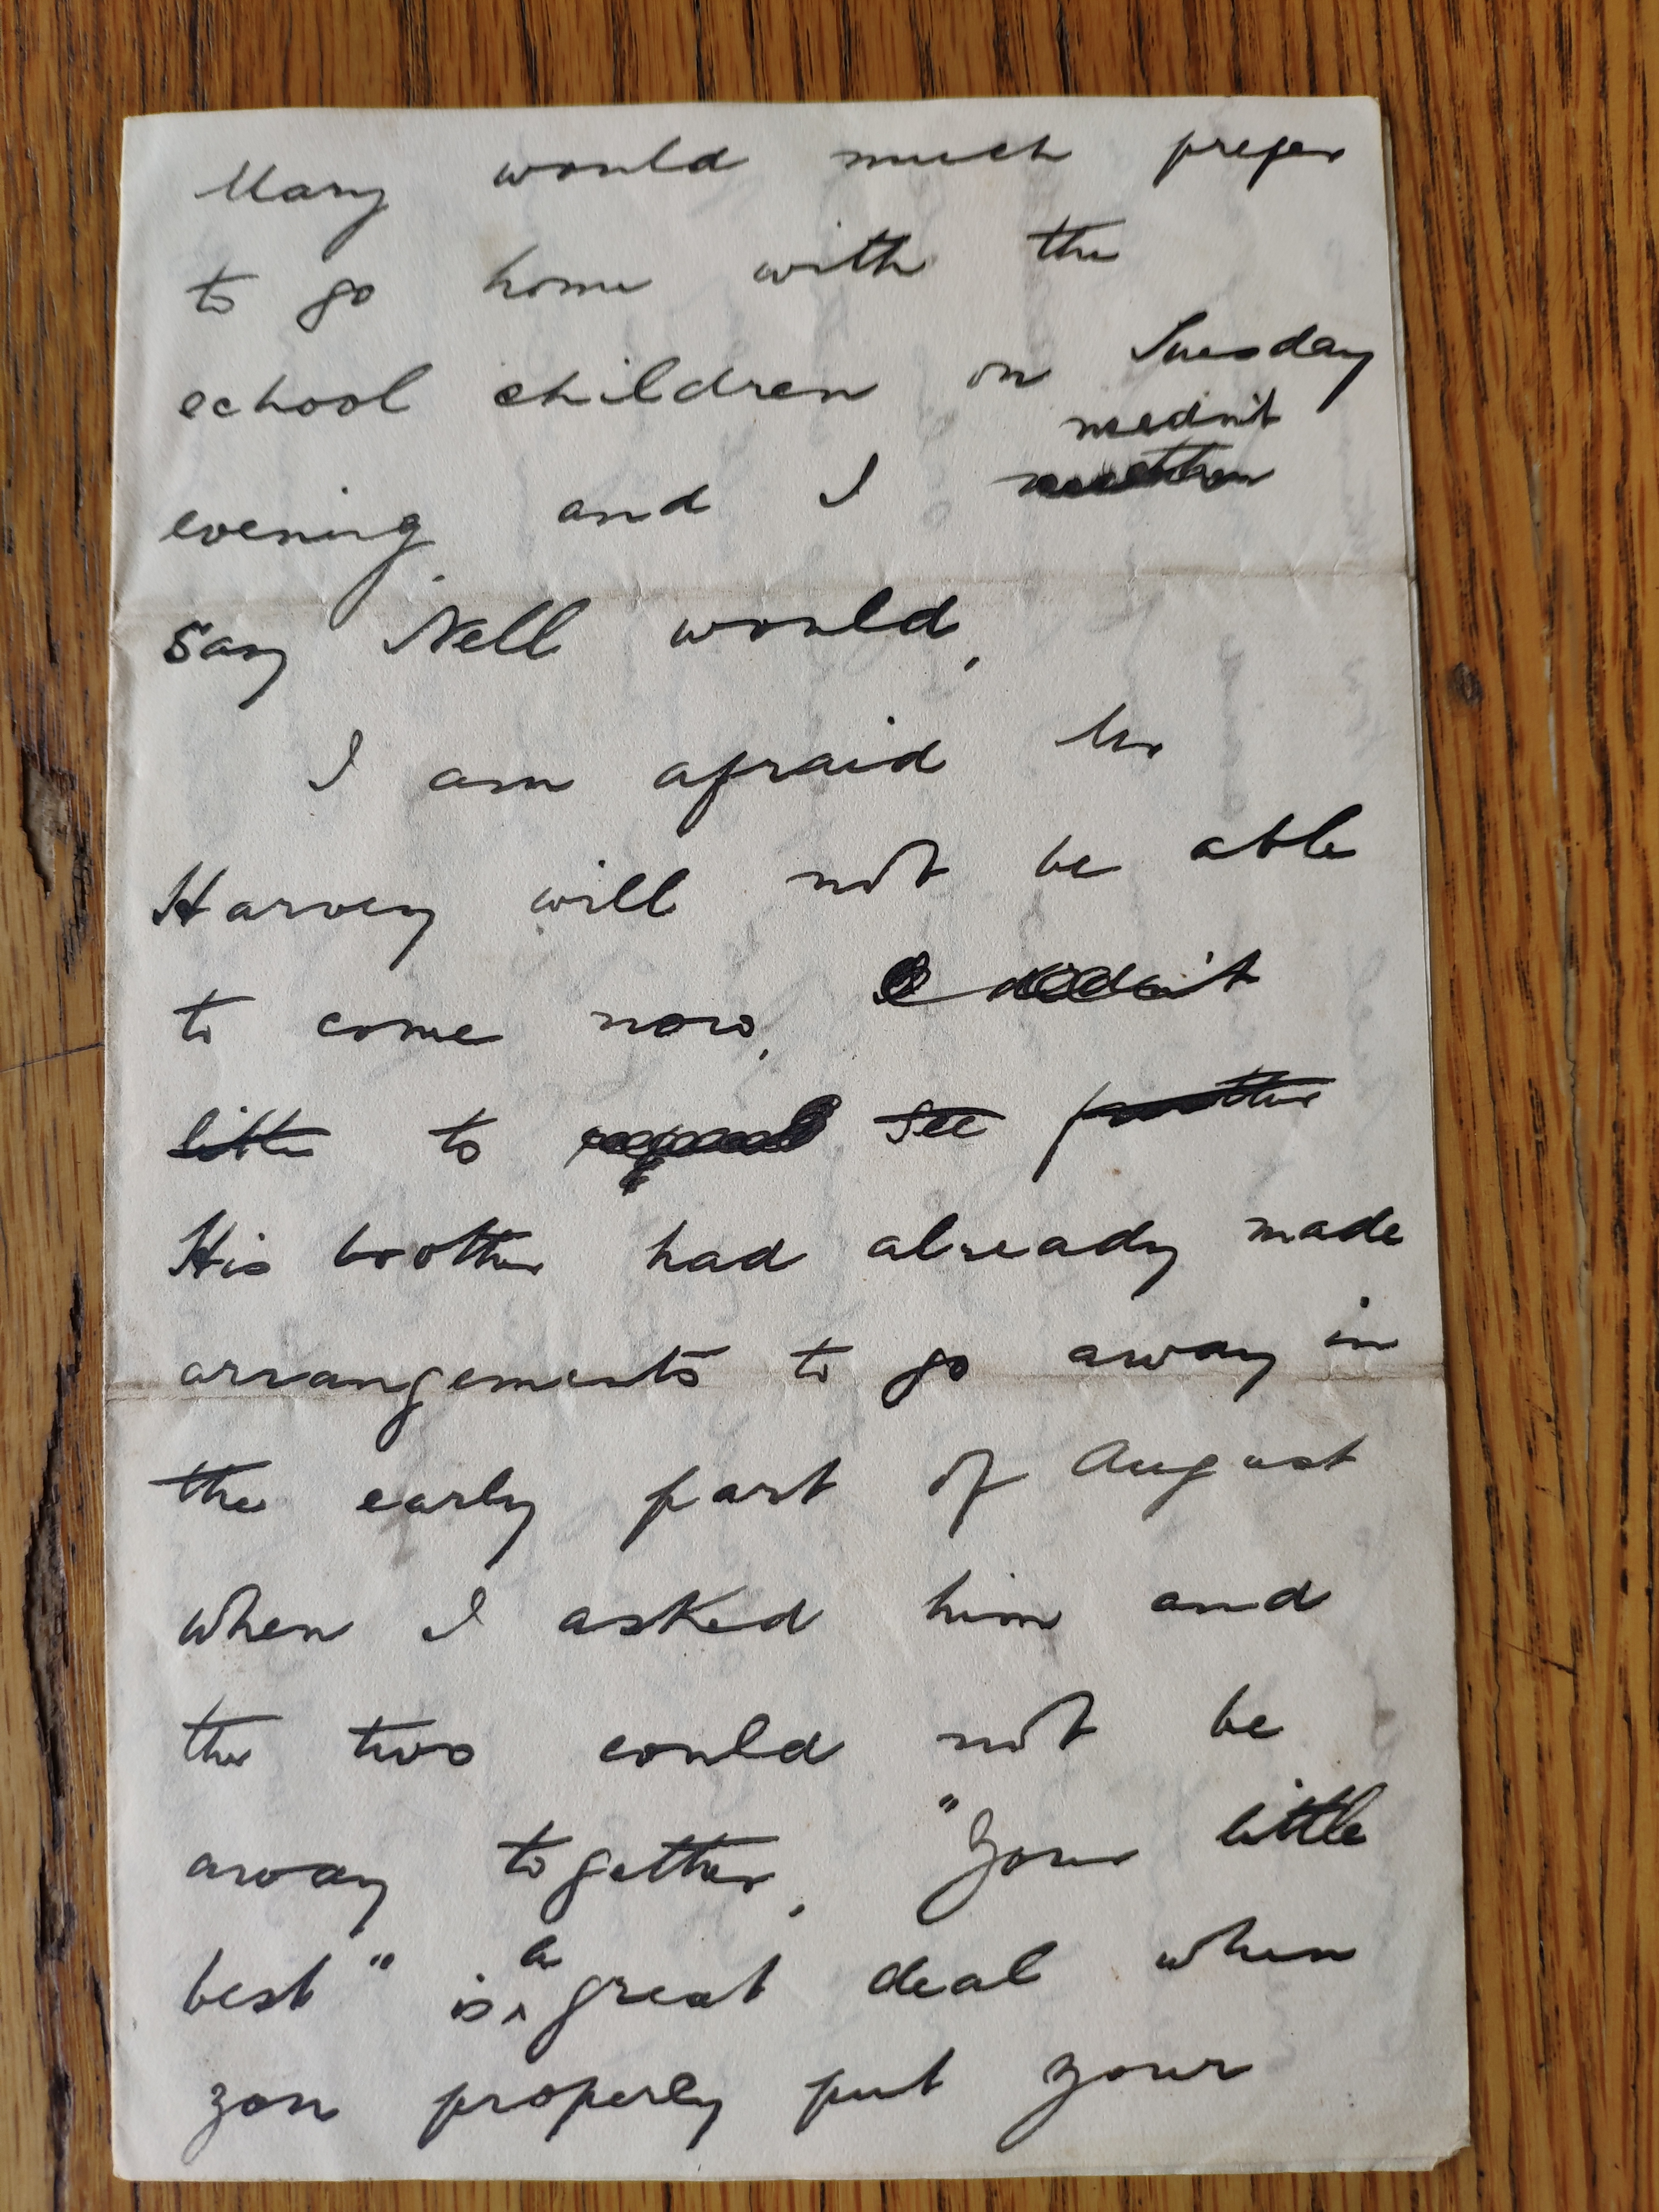 Mary would much prefer
to go home with the
school children on Tuesday
needn't
evening and I
say Nell would.
I am afraid Mr
Harvey will not be able
to come now.
little to see
His brother had already made
arrangements to go away in
the early part of August
when I asked him and
the two could not be
away together. "Your little
a
best" is ^ great deal when
you properly put your